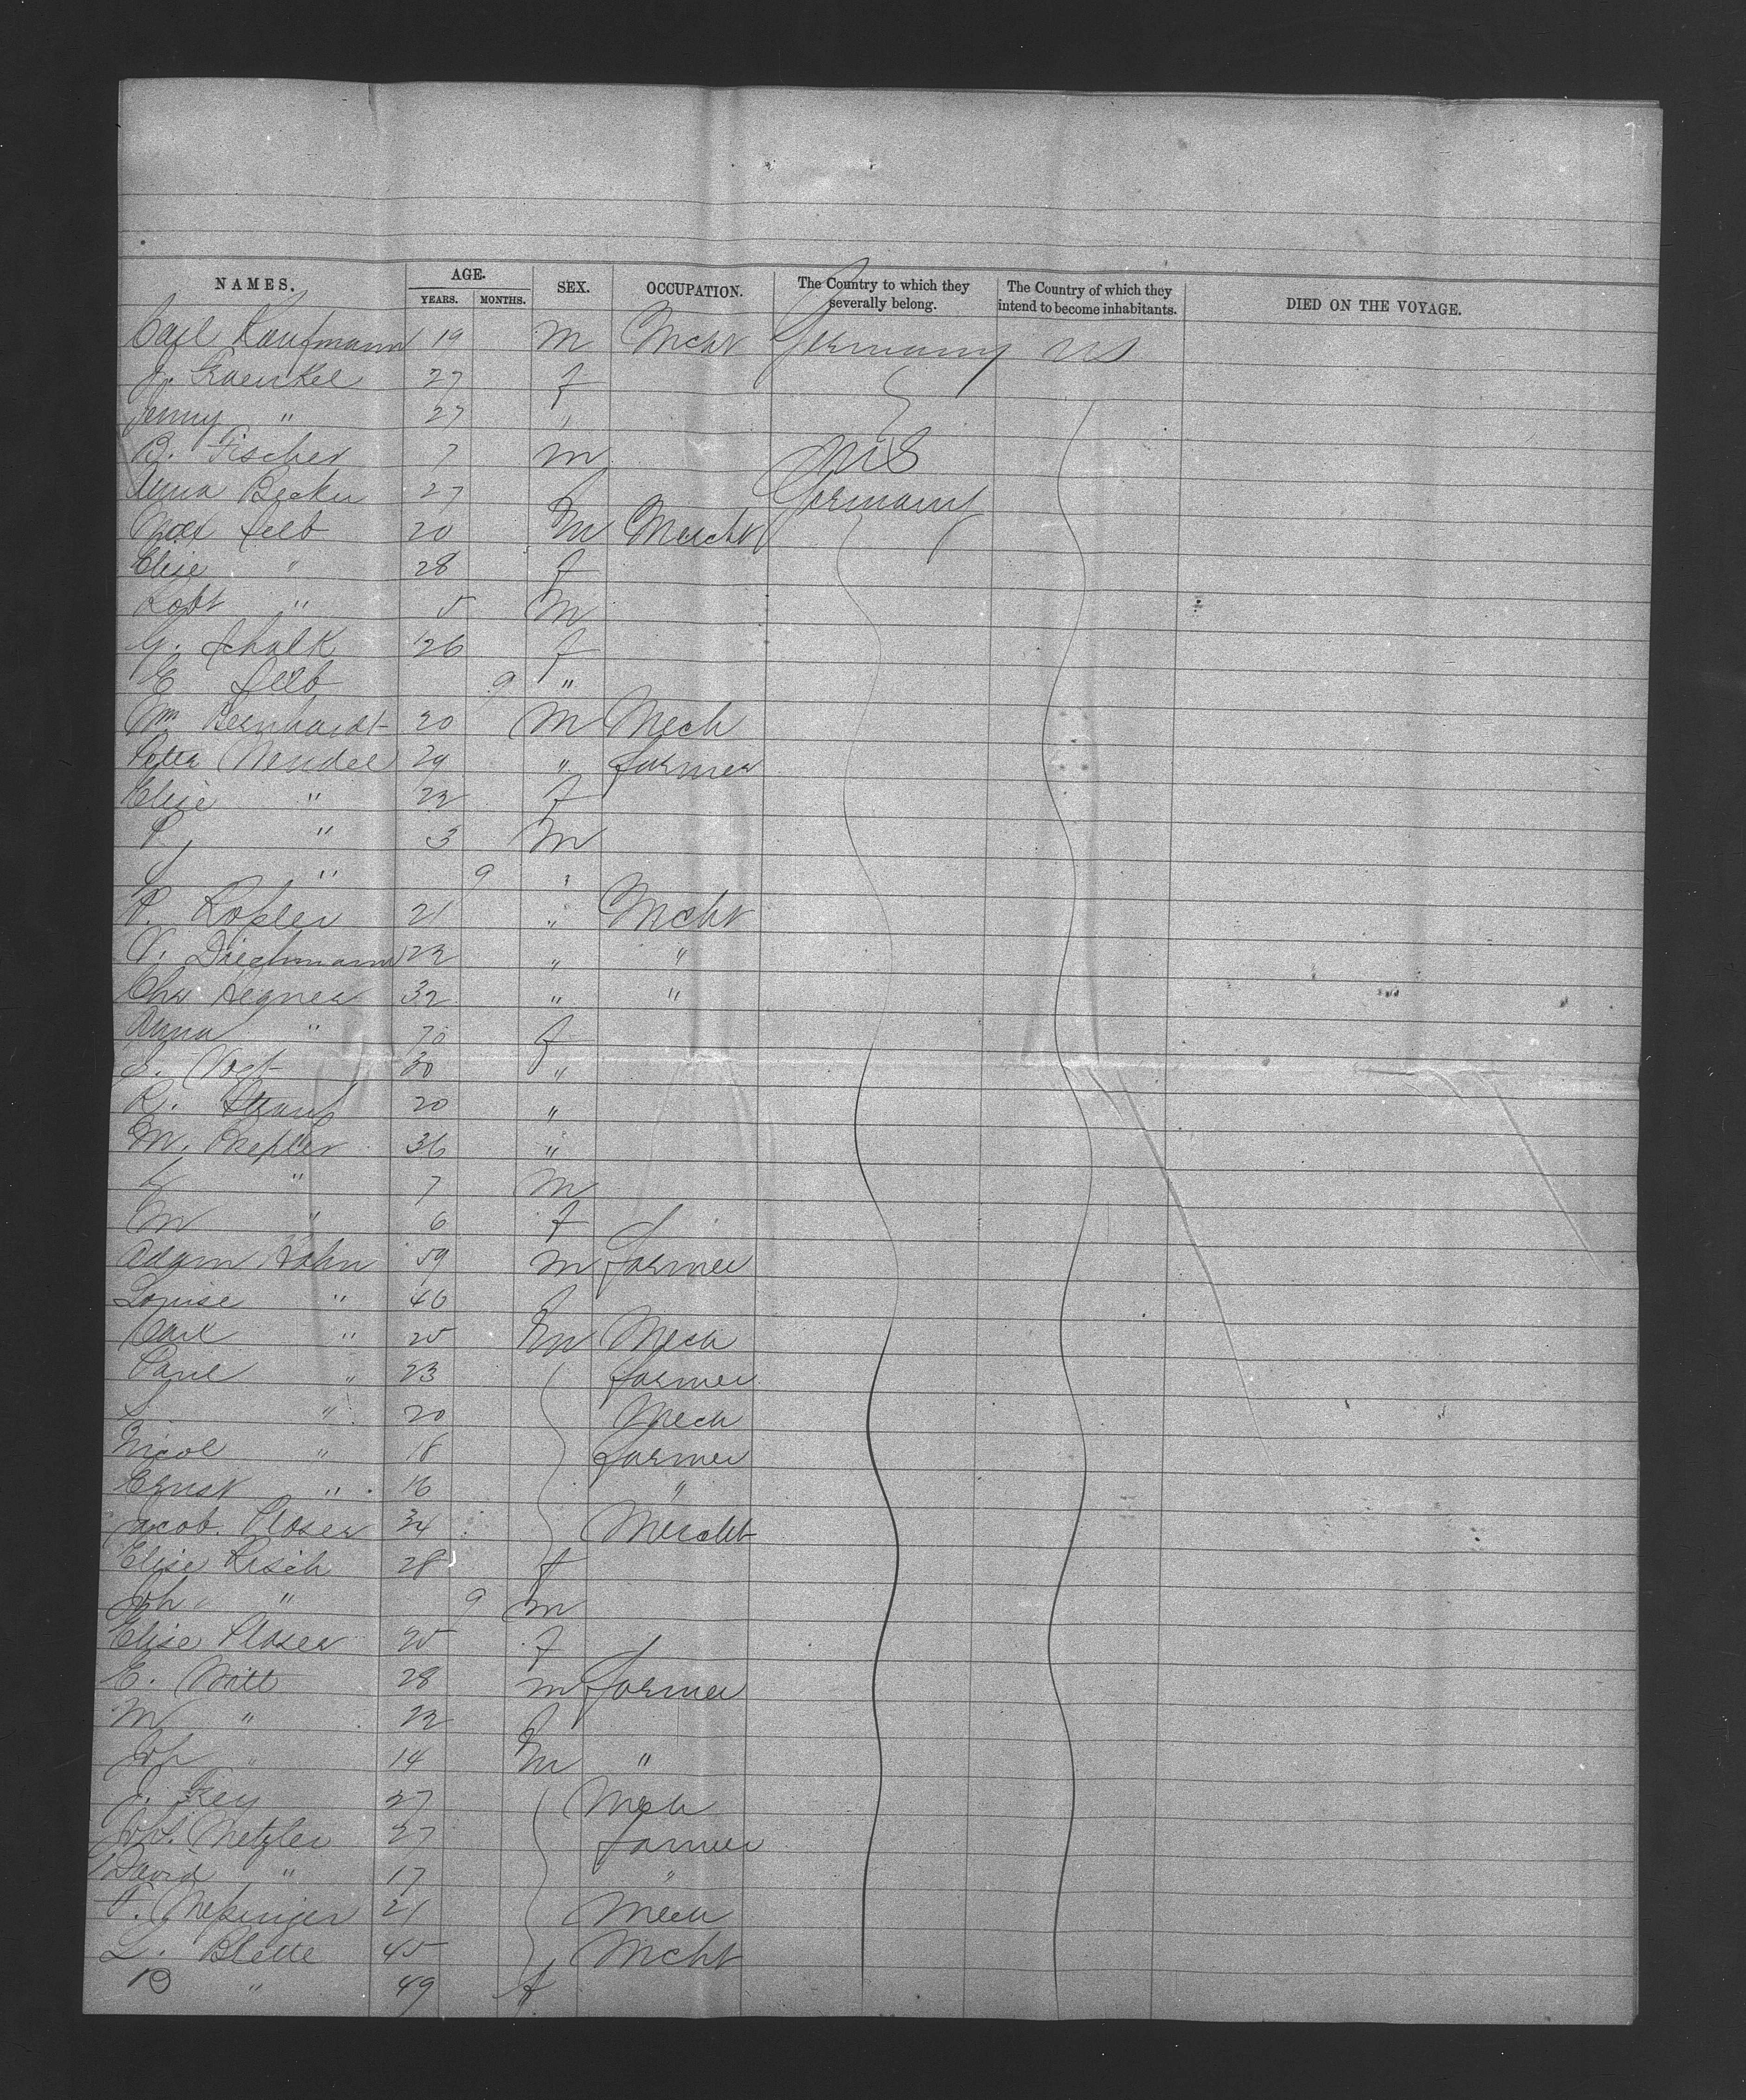 NAMES. AGE. YEARS. MONTHS. SEX. OCCUPATION. The Country to which they severally belong. The Country of which they intend to become inhabitants. DIED ON THE VOYAGE.
Carl Kaufmann 19 m Mcht Germany US
J. Fraenkel 27 f
Jenny " 27 "
B. Fischer 7 m US
Anna Becker 27 f Germany
Max 20 m Mercht
Elise " 28 f
Robt " 5 m
G. Schalk 26 f
E 9 "
Wm Bernhardt 20 m Mech
Peter Mendel 29 " farmer
Elise " 22 f
P. " 3 m
J " 9 "
P. 21 " Mcht
V. Diechmann 22 " "
Chr Regner 32 " "
Anna " 70 f
S. Vogt 30 "
R. Straub 20 "
M. 36 "
" 7 m
M " 6 f
Adam Hahn 59 m farmer
Louise " 46 f
Carl " 25 m Mech
Paul " 23 farmer
" 20 Mech
Nicol " 18 farmer
Ernst " 16 "
Jacob Closer 34 Mercht
Elise Resch 28 f
Joh " 9 m
Elise Closer 25 f
E. Witt 28 m farmer
M " 22 f
Joh " 14 m "
J. Frey 27 Mech
Joh. Metzler 27 farmer
David " 17 "
21 Mech
L. 45 Mcht
B " 49 f